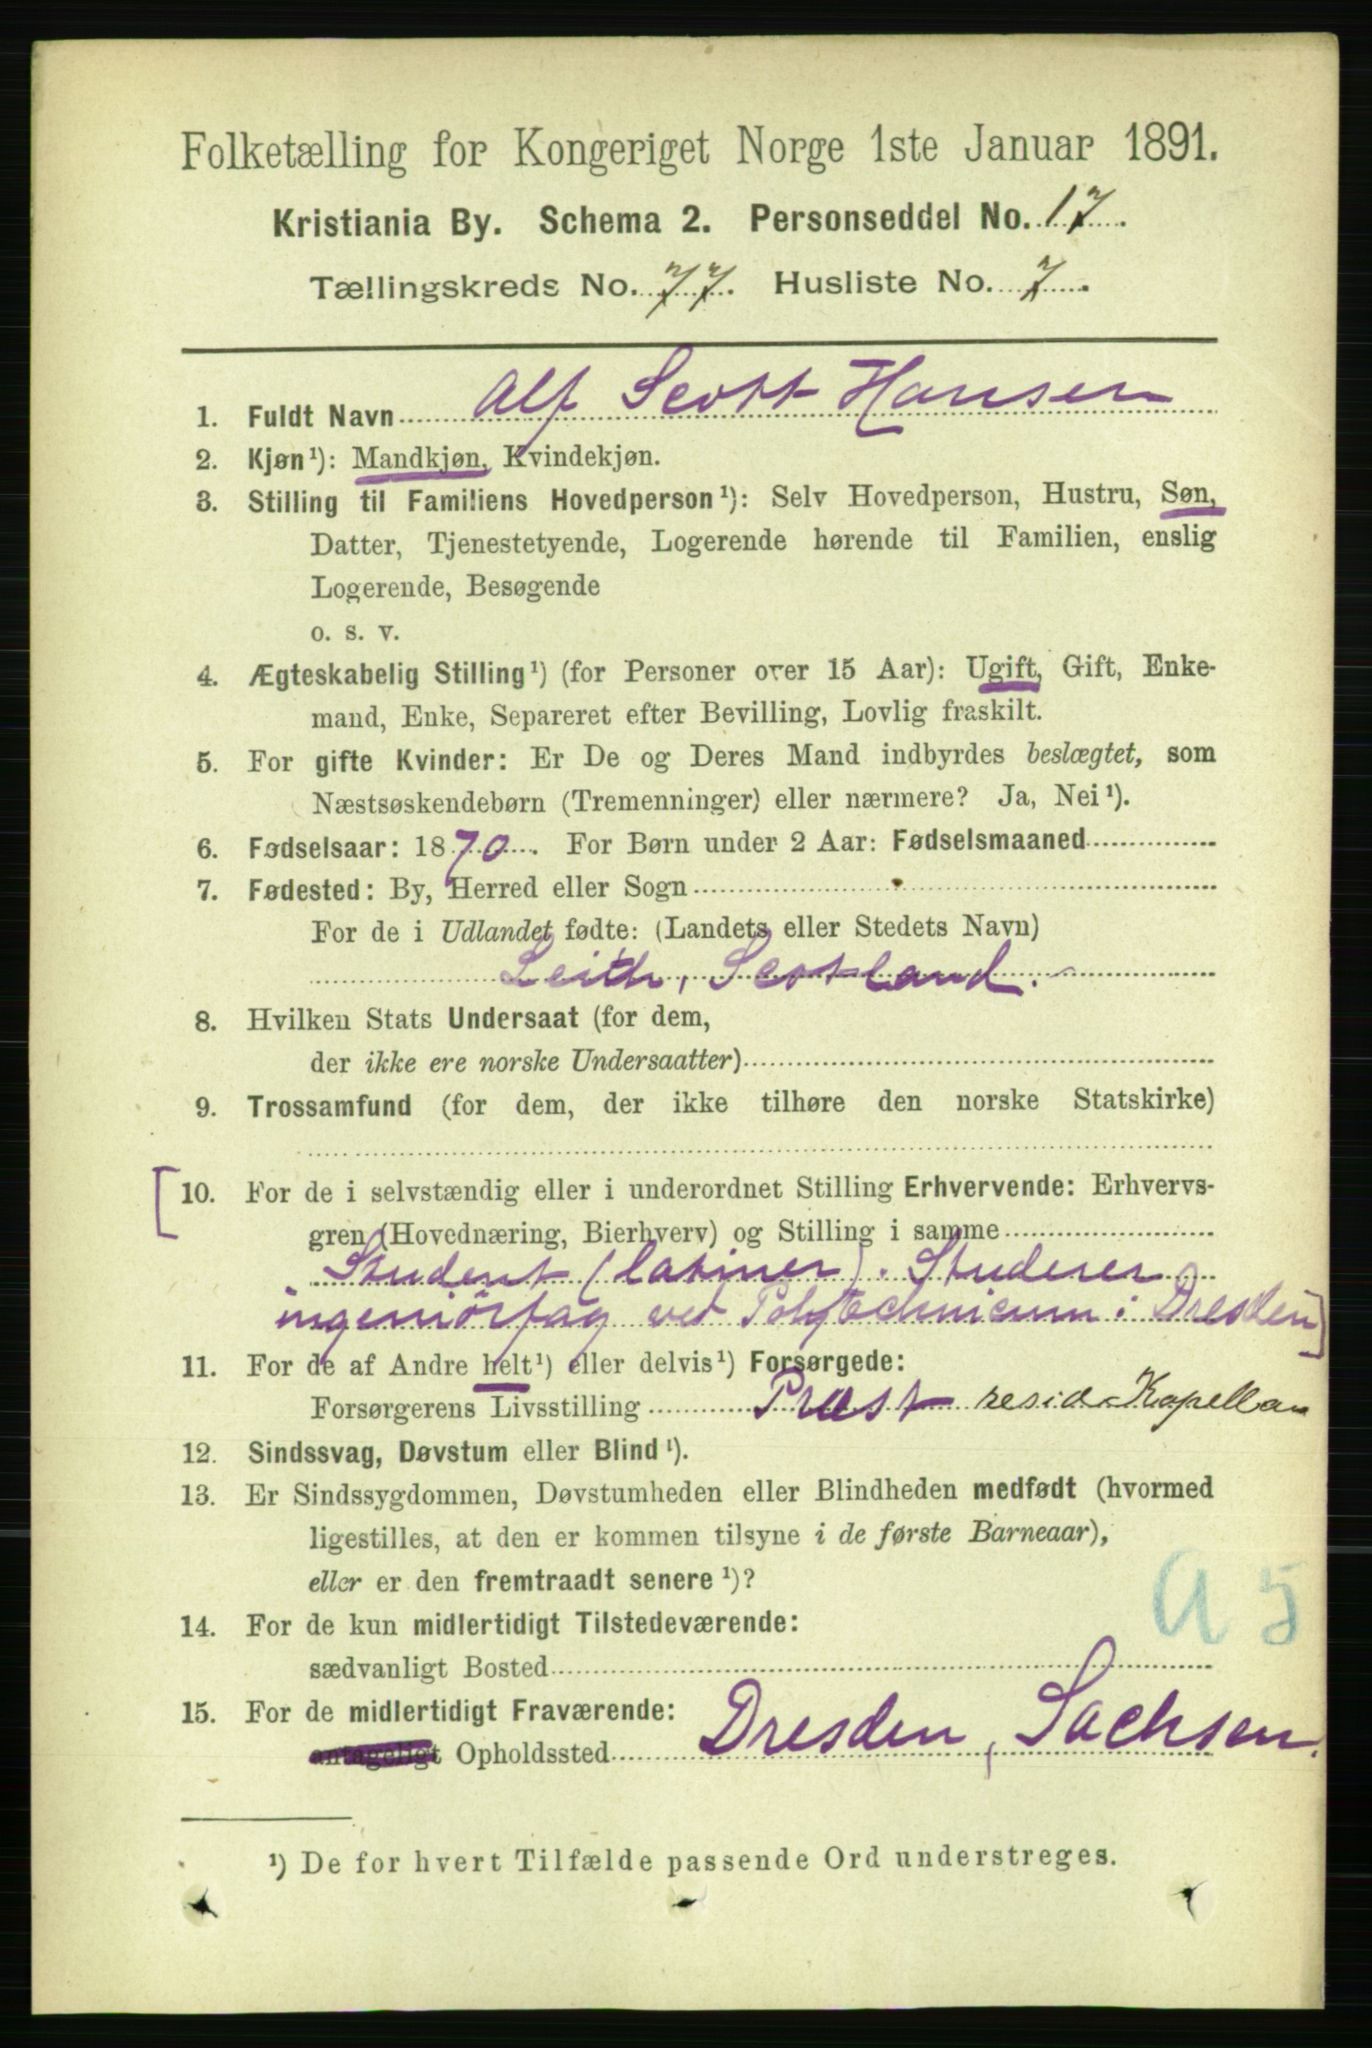 Folketælling for Kongeriget Norge 1ste Januar 1891.
Kristiania By. Schema 2. Personseddel No. 17.
Tællingskreds No. 77. Husliste No. 7.
1. Fuldt Navn Alf Scott Hansen
2. Kjøn¹): Mandkjøn, Kvindekjøn.
3. Stilling til Familiens Hovedperson¹): Selv Hovedperson, Hustru, Søn,
Datter, Tjenestetyende, Logerende hørende til Familien, enslig
Logerende, Besøgende
o. s. v.
4. Ægteskabelig Stilling¹) (for Personer over 15 Aar): Ugift, Gift, Enke-
mand, Enke, Separeret efter Bevilling, Lovlig fraskilt.
5. For gifte Kvinder: Er De og Deres Mand indbyrdes beslægtet, som
Næstsøskendebørn (Tremenninger) eller nærmere? Ja, Nei¹).
6. Fødselsaar: 1870. For Børn under 2 Aar: Fødselsmaaned
7. Fødested: By, Herred eller Sogn
For de i Udlandet fødte: (Landets eller Stedets Navn)
Leith, Scotland.
8. Hvilken Stats Undersaat (for dem,
der ikke ere norske Undersaatter)
9. Trossamfund (for dem, der ikke tilhøre den norske Statskirke)
[10. For de i selvstændig eller i underordnet Stilling Erhvervende: Erhvervs-
gren (Hovednæring, Bierhverv) og Stilling i samme
Student (latiner). Studerer
ingeniörfag ved Polytechnicum i Dresden]
11. For de af Andre helt¹) eller delvis¹) Forsørgede:
Forsørgerens Livsstilling Præst resid. Kapellan
12. Sindssvag, Døvstum eller Blind¹).
13. Er Sindssygdommen, Døvstumheden eller Blindheden medfødt (hvormed
ligestilles, at den er kommen tilsyne i de første Barneaar),
eller er den fremtraadt senere¹)?
A 5
14. For de kun midlertidigt Tilstedeværende:
sædvanligt Bosted
15. For de midlertidigt Fraværende:
antageligt Opholdssted Dresden, Sachsen.
¹) De for hvert Tilfælde passende Ord understreges.